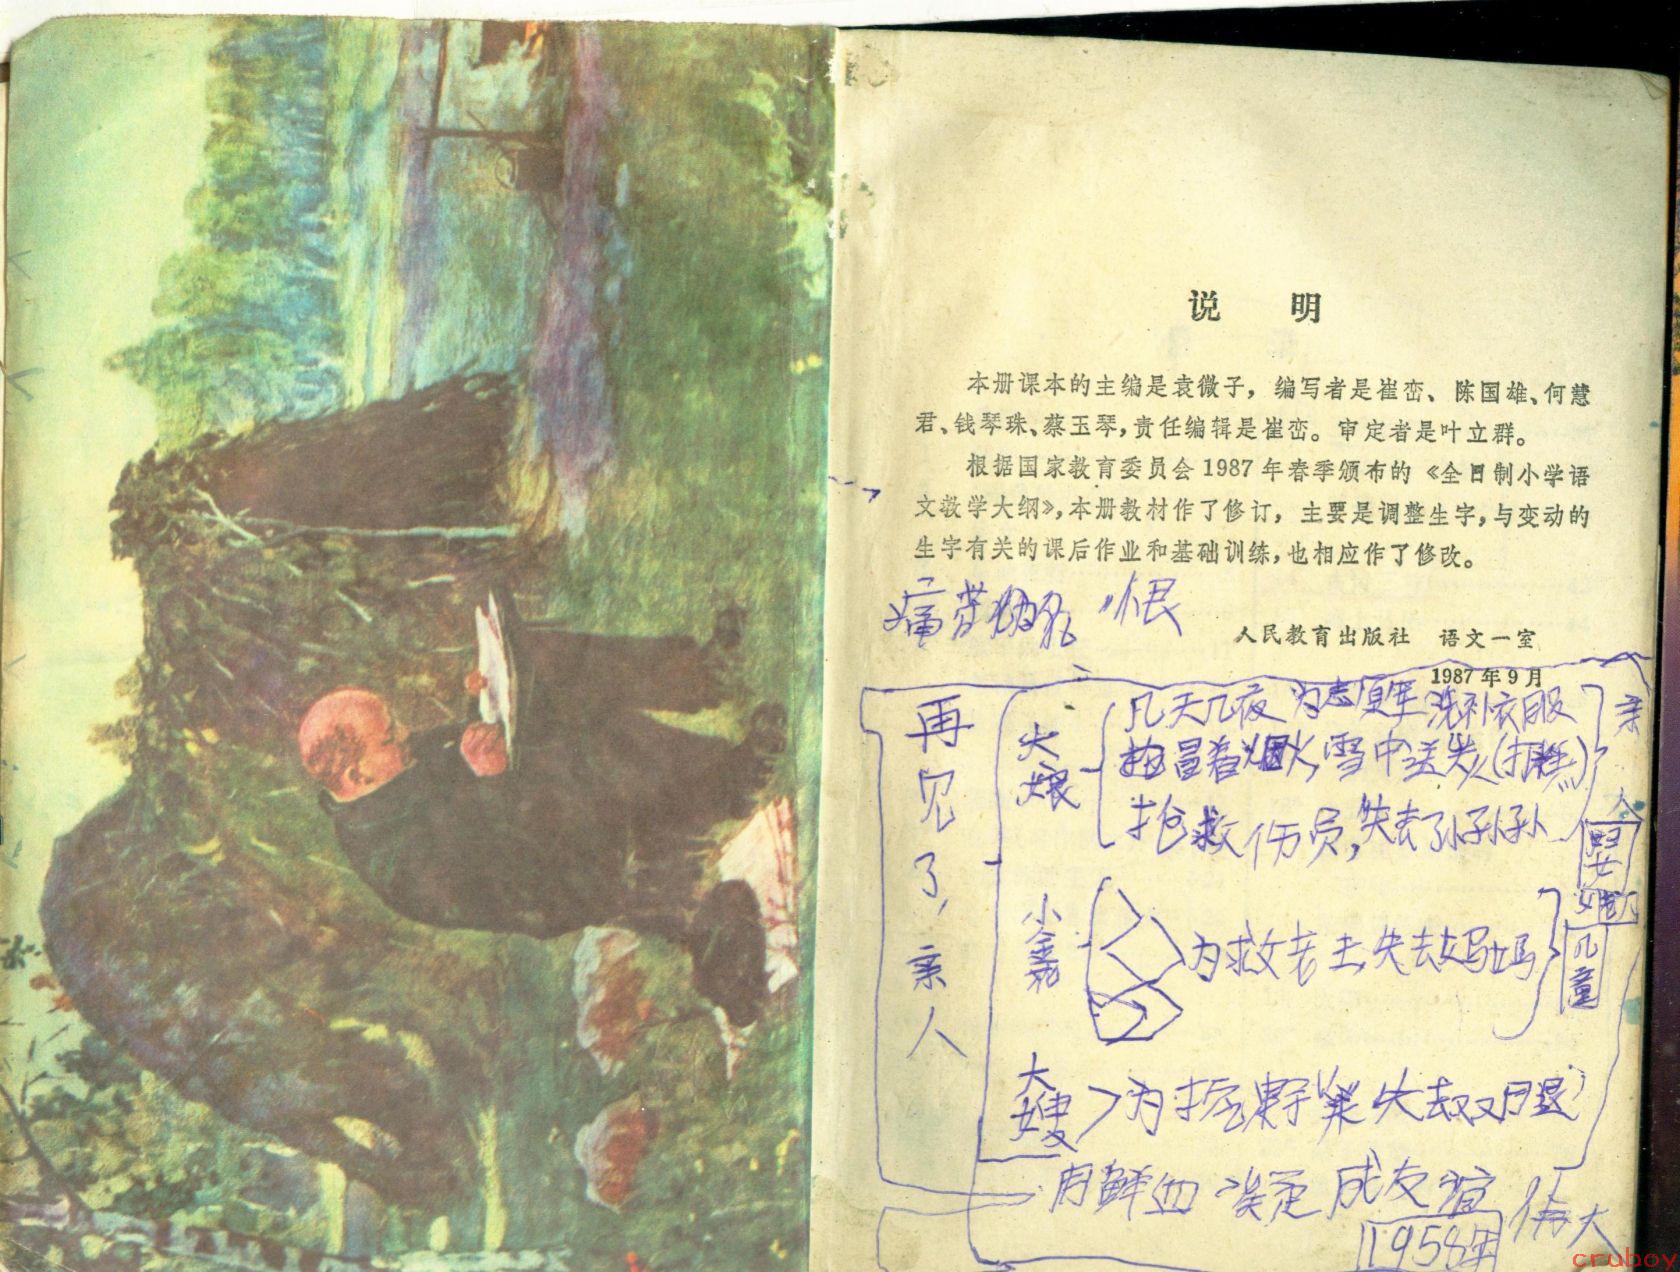 说 明
本册课本的主编是袁微子，编写者是崔峦、陈国雄、何慧
君、钱琴珠、蔡玉琴，责任编辑是崔峦。审定者是叶立群。
根据国家教育委员会 1987 年春季颁布的《全日制小学语
文教学大纲》，本册教材作了修订，主要是调整生字，与变动的
生字有关的课后作业和基础训练，也相应作了修改。
恨
人民教育出版社 语文一室
1987 年 9 月
再见了，亲人
几天几夜为志愿军洗补衣服
冒着 火，雪中送
抢救伤员，失去了
亲人
小金花
为救老 失去妈妈
儿童
大嫂
为挖野菜失去双腿
用鲜血凝 成友谊
伟大
1958年
cruboy